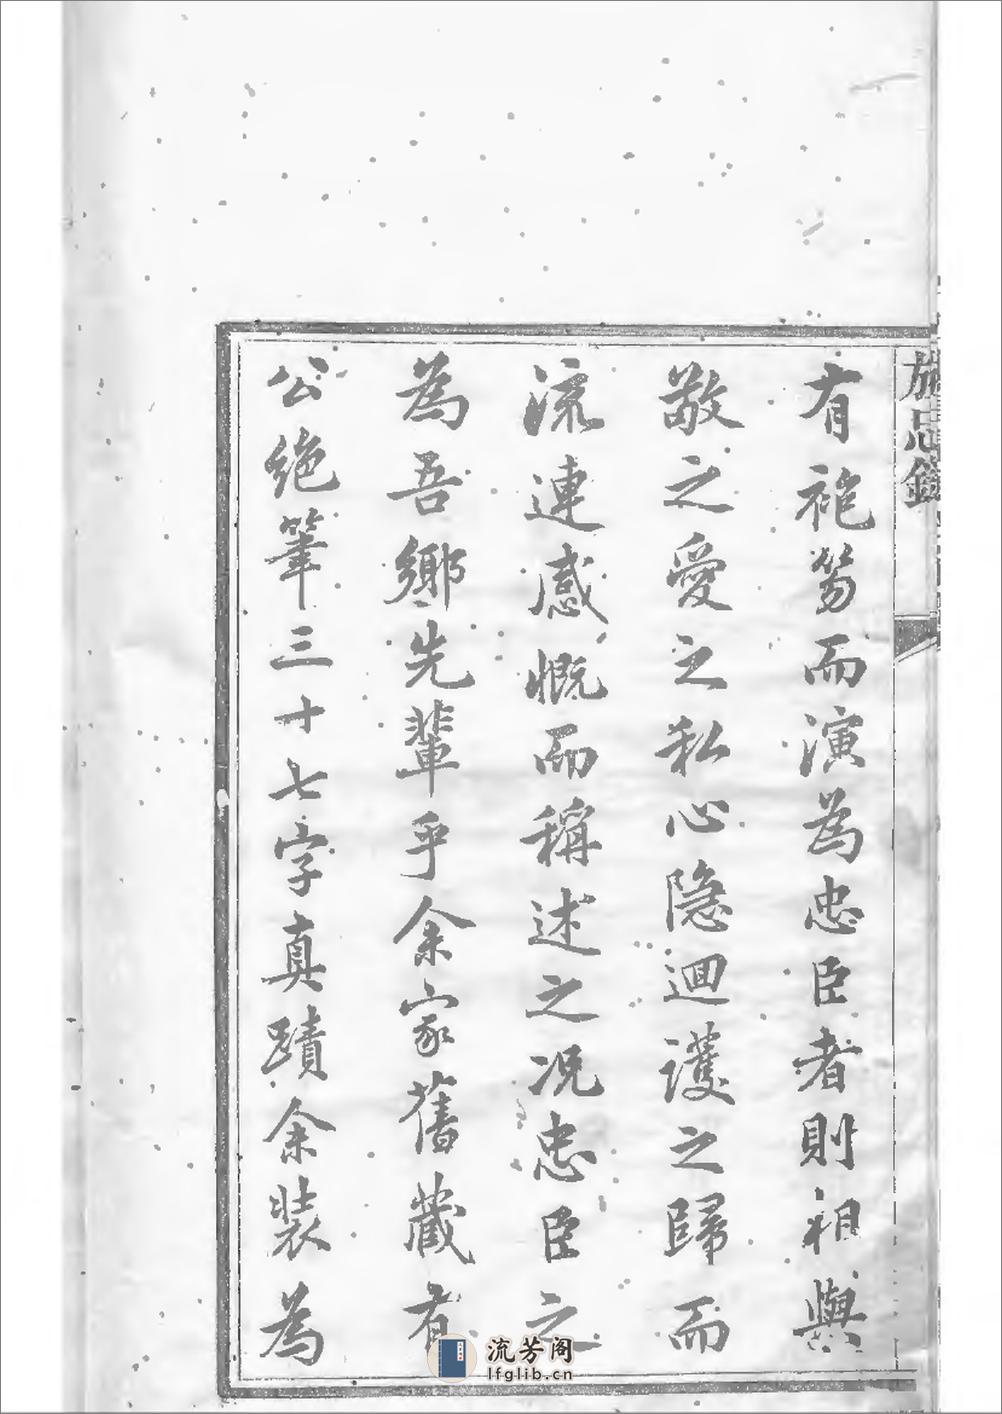 旌忠錄
有袍笏而演為忠臣者則相與
敬之愛之私心隐迴護之歸而
流連感慨而稱述之况忠臣之
為吾鄉先輩乎余家舊藏有
公绝筆三十七字真蹟余装為
流芳阁
lfglib.cn